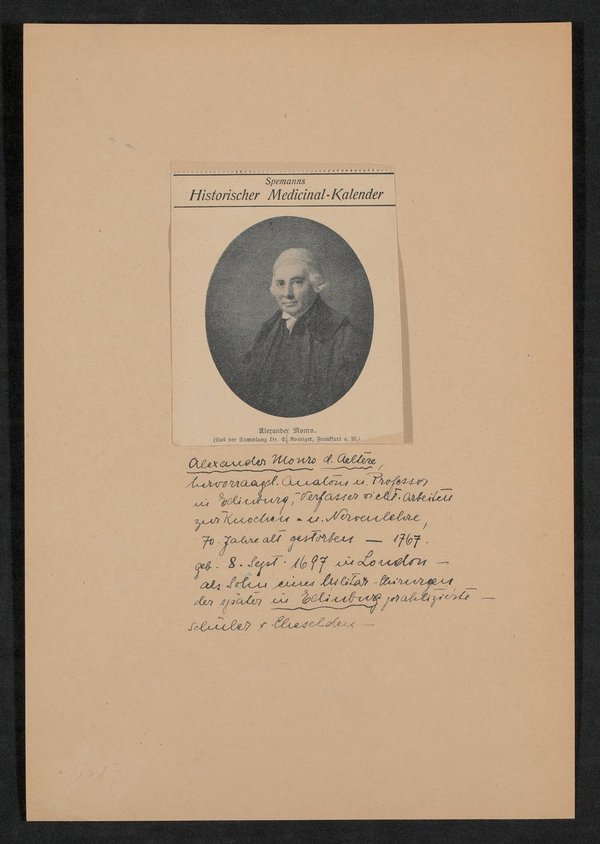 Spemanns
Historischer Medicinal-Kalender
Alexander Monro.
(Aus der Sammlung Dr. E. Roediger, Frankfurt a. M.)
Alexander Monro d. Aeltere,
hervorragd. Anatom u. Professor
in Edinburg, Verfasser wicht. Arbeiten
zur Knochen- u. Nervenlehre,
70 Jahre alt gestorben — 1767.
geb. 8. Sept. 1697 in London —
als Sohn eines Militär-Chirurgen
der später in Edinburg praktizierte —
Schüler v Cheselden —